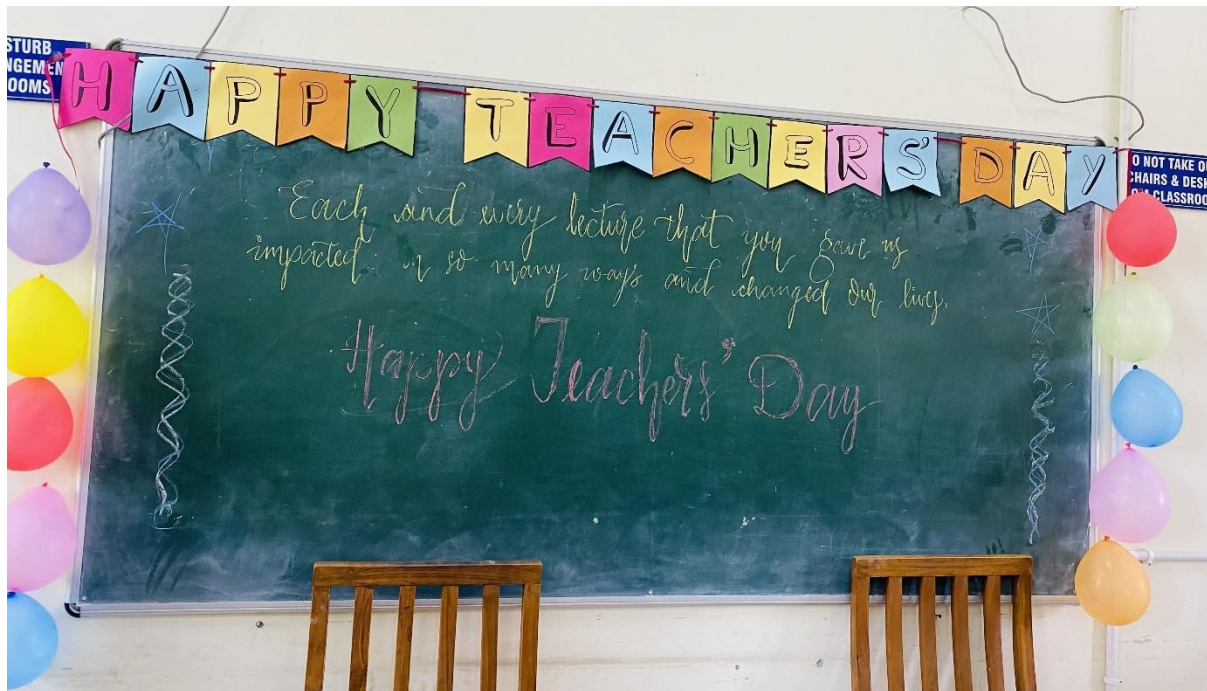 STURB
NGEMEN
OOMS
HAPPY TEACHERS' DAY
O NOT TAKE O
HAIRS & DES
CLASSROO
Each and every lecture that you gave us
impacted in so many ways and changed our lives.
Happy Teachers' Day